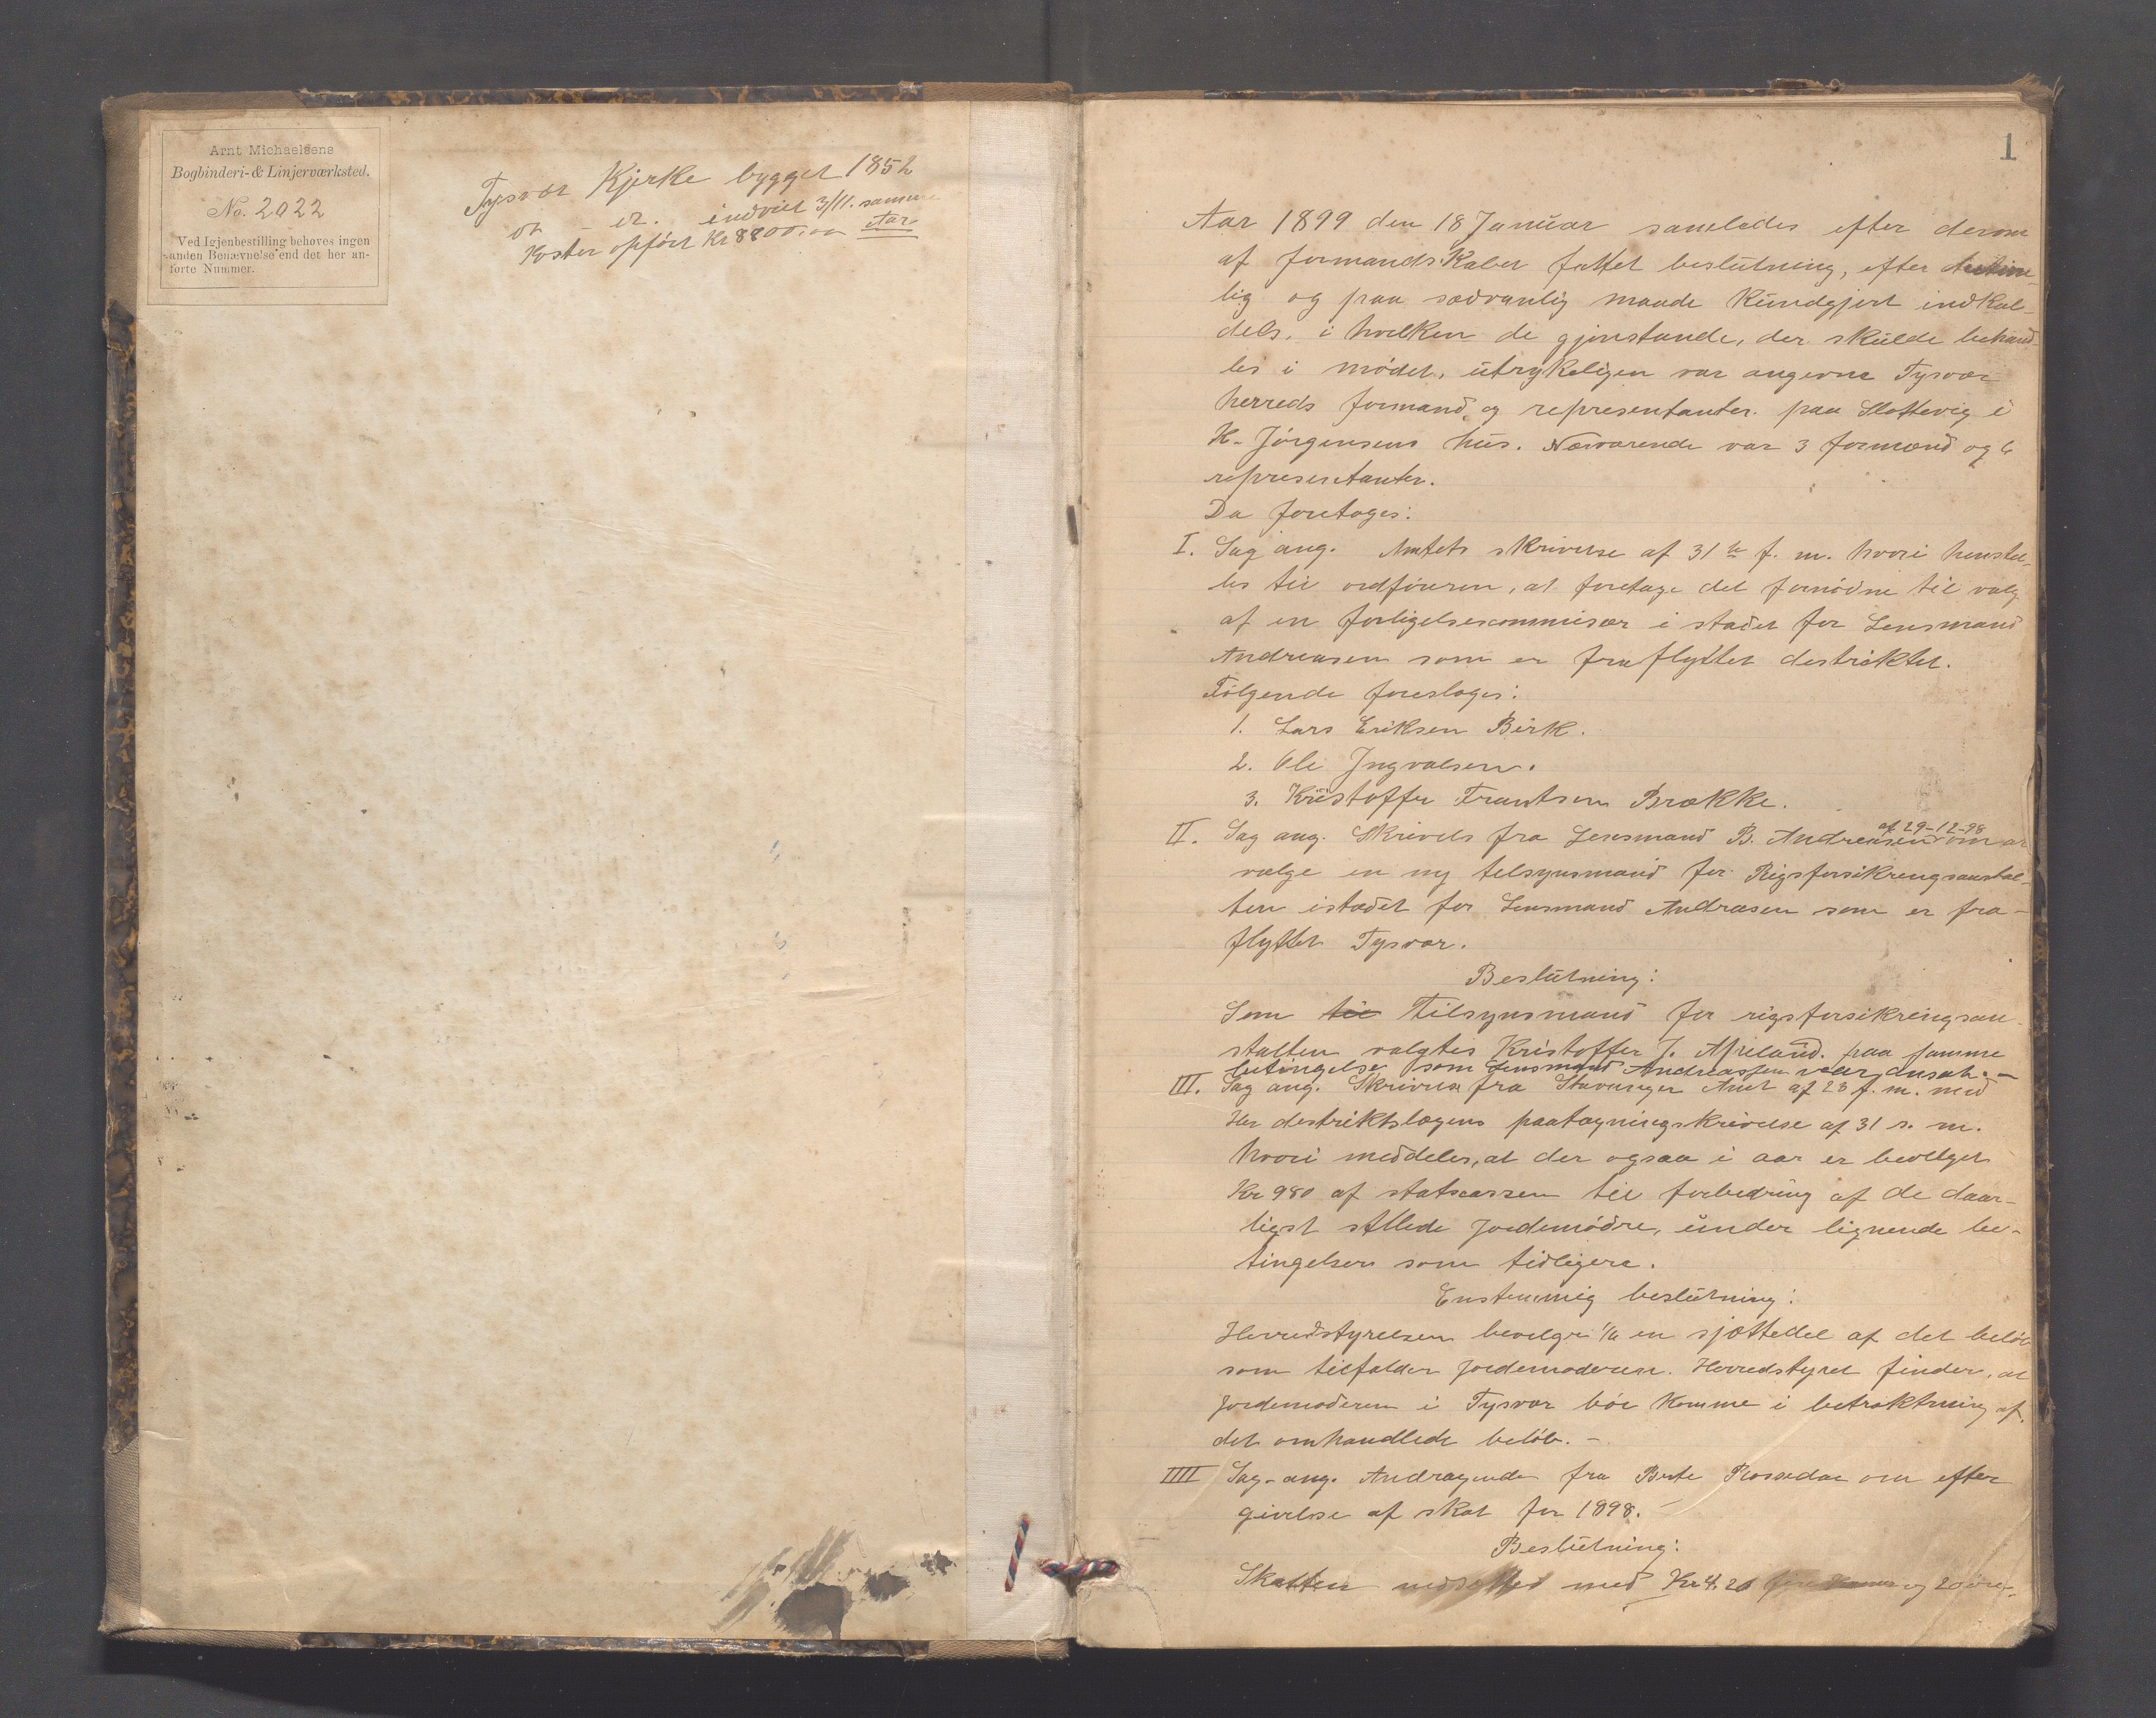 Arnt Michaelsens
Bogbinderi- & Linjerværksted.
No. 2022
Ved Igjenbestilling behøves ingen
anden Benævnelse end det her an-
førte Nummer.
Tysvær Kjerke bygget 1852
og er indviet 3/11. samme
Aar
Koster opført Kr 8800,00
1
Aar 1899 den 18 Januar samledes efter derom
af formandskabet fattet beslutning, efter
lig og paa sædvanlig maade kundgjort indkal-
dels, i hvilken de gjenstande, der skulde behand-
les i mødet, utrykeligen var angevne Tysvær
herreds formænd og representanter paa Slottevig i
K. Jørgensens hus. Nærværende var 3 formænd og 6
representanter.
Da foretoges:
I. Sag ang. Amtets skrivelse af 31te f. m. hvori henstel-
les til ordføreren, at foretage det fornødne til valg
af en forligelsescommisær i stædet for Lensmand
Andreasen som er fraflyttet destriktet.
Følgende foresloges:
1. Lars Eriksen Birk.
2. Ole Ingvalsen.
3. Kristoffer Frantsen Brække.
II. Sag ang. Skrivels fra Lensmand B. Andreasen af 29-12-98 om at
vælge en ny telsynsmand for Rigsforsikrengsanstal-
ten istædet for Lensmand Andræsen som er fra-
flyttet Tysvær.
Beslutning:
Som til Tilsynsmand for rigsforsikringsan-
stalten valgtes Kristoffer J. Apeland. paa samme
betingelse som Lensmand Andreassen var ansat. -
III. Sag ang. Skrivelse fra Stavanger Amt af 28 f. m. med
Hr destriktslægens paategningskrivelse af 31 s. m.
hvori meddeles, at der ogsaa i aar er bevilget
Kr 980 af statscassen til forbedring af de daar-
ligst stllede jordemødre, under lignende be-
tingelser som tidligere.
Enstemmig beslutning:
Herredstyrelsen bevelger 1/6 en sjættedel af det beløb
som tilfalder jordemoderen. Herredstyret finder, at
jordemoderen i Tysvær bør komme i betraktning af
det omhandlede beløb. -
IIII Sag ang. Andragende fra Berte om efter
givelse af skat for 1898. -
Beslutning:
Skatten nedsættes med Kr 4.20 fire Kroner og 20 øre. -